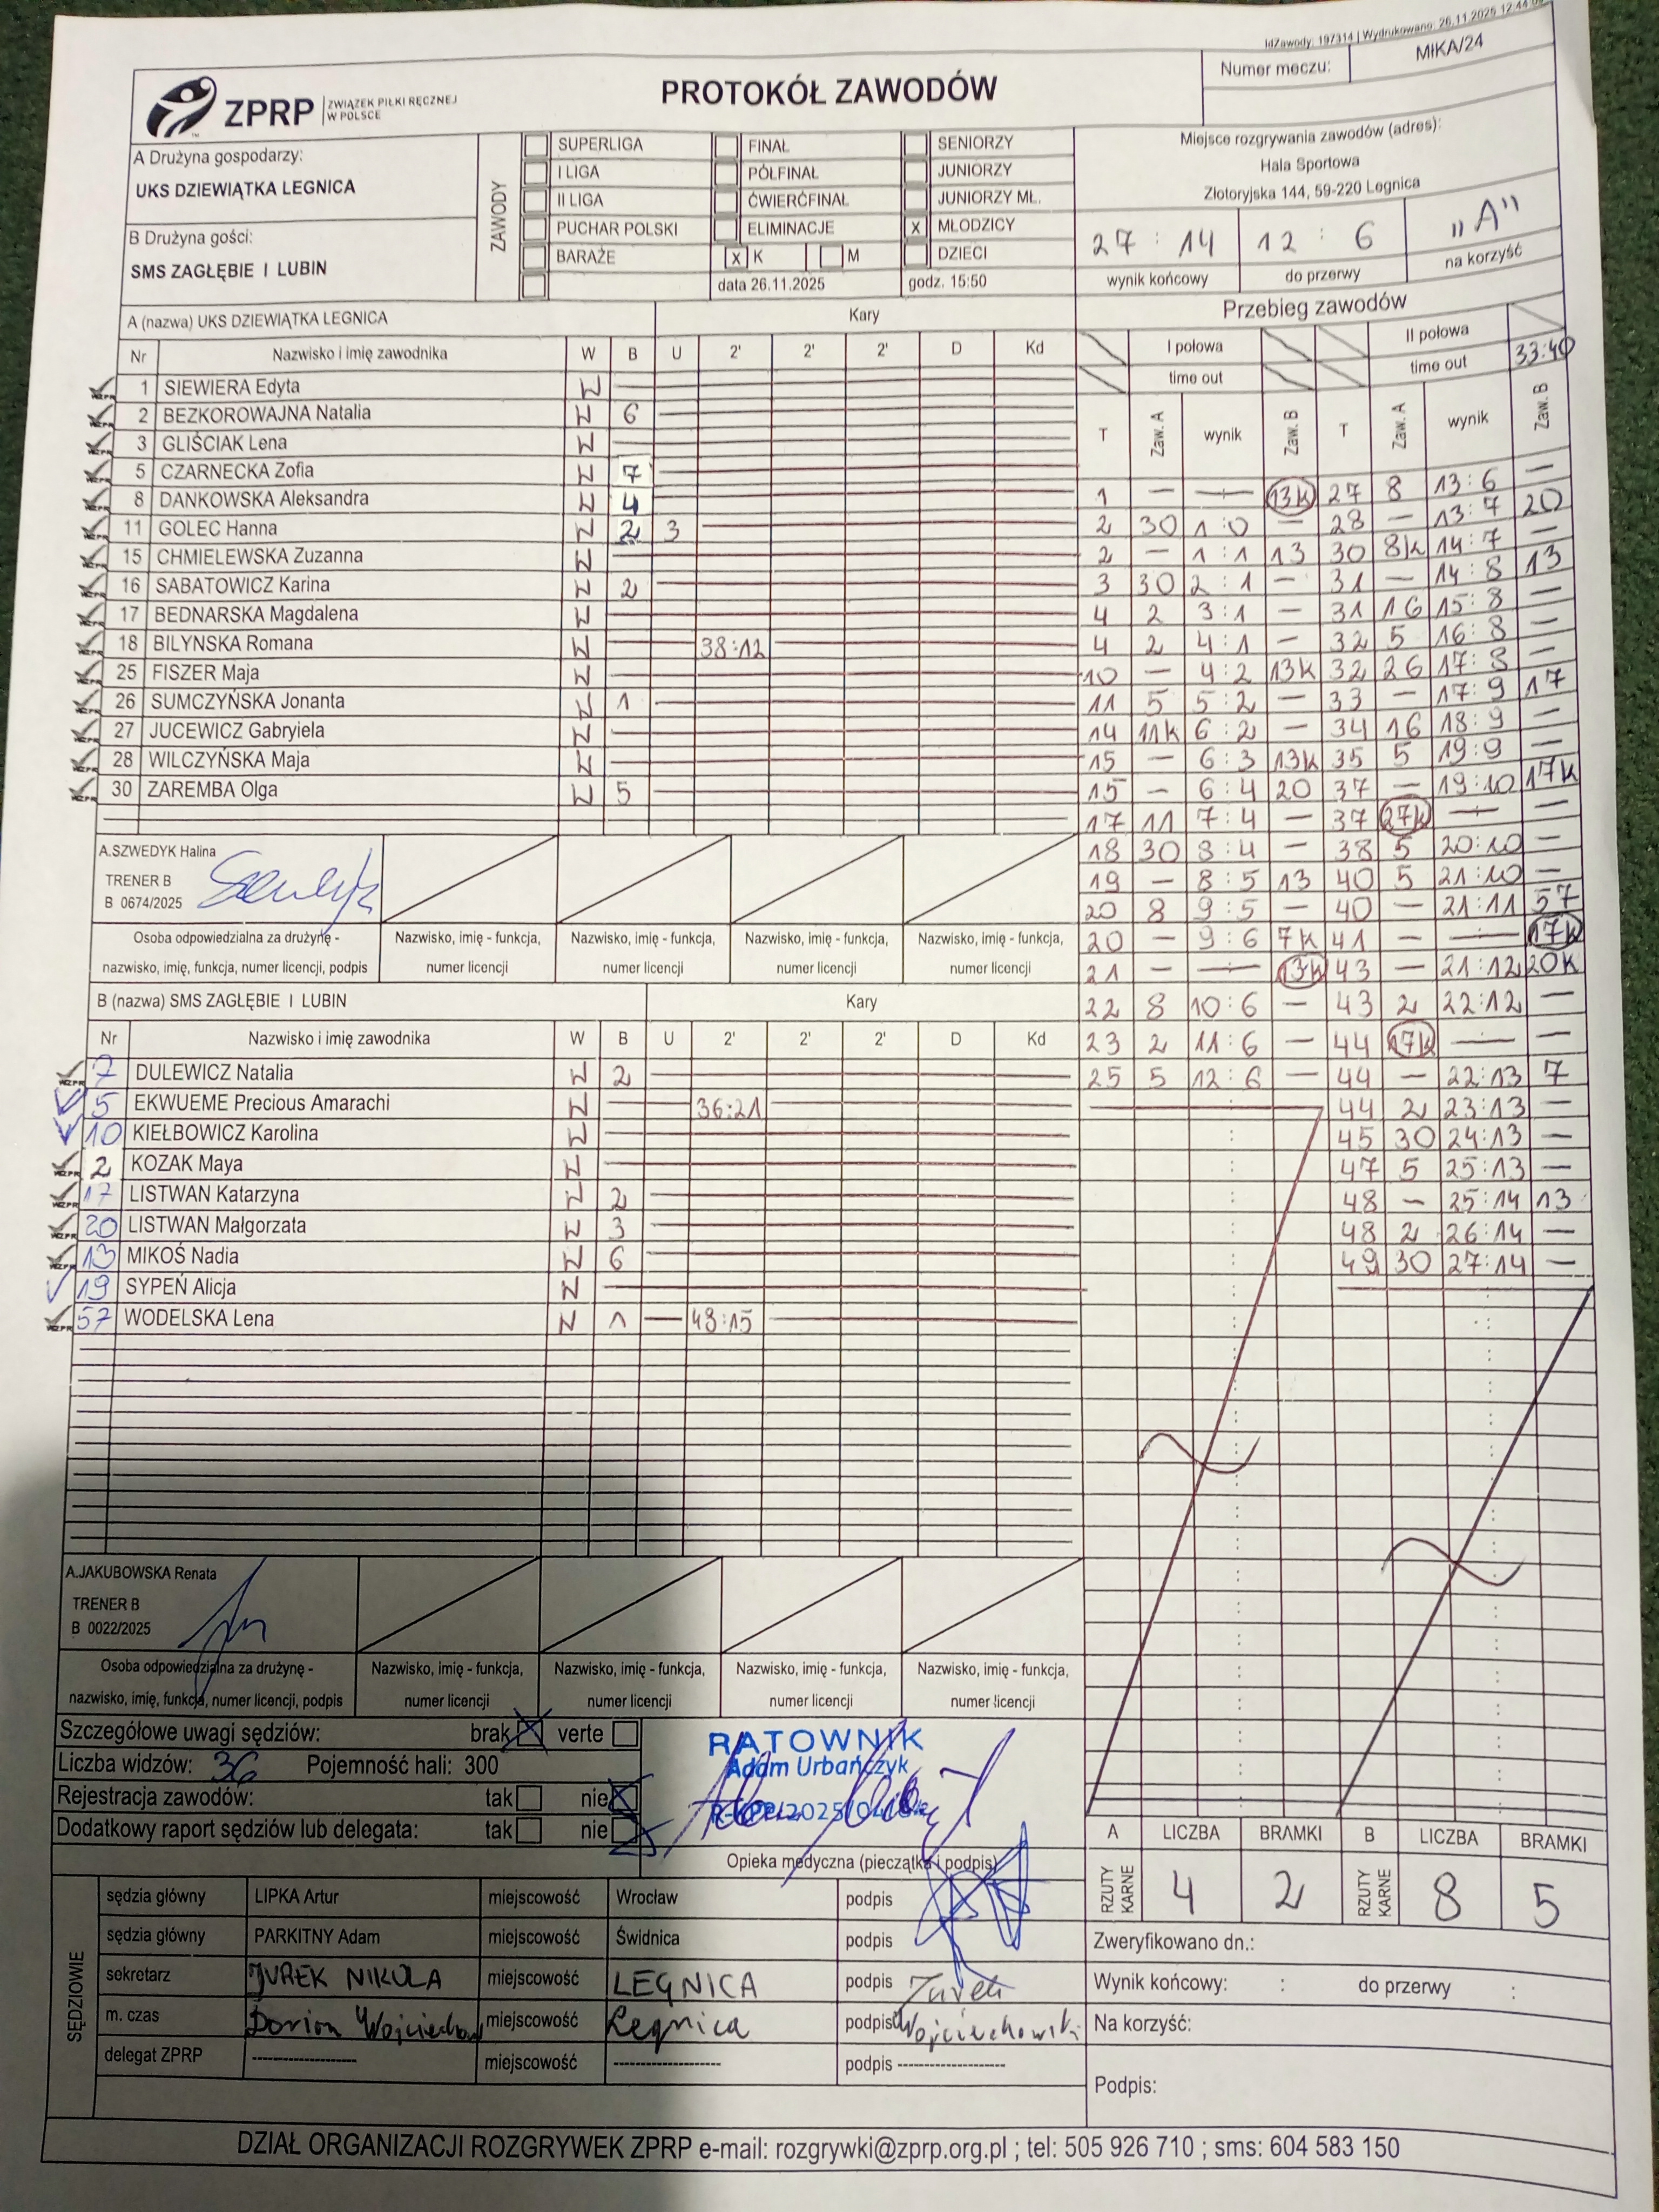 IdZawody: 197314 | Wydrukowano: 26.11.2025 12:44
Numer meczu: MIKA/24
ZPRP ZWIĄZEK PIŁKI RĘCZNEJ
W POLSCE
PROTOKÓŁ ZAWODÓW
A Drużyna gospodarzy:
UKS DZIEWIĄTKA LEGNICA
B Drużyna gości:
SMS ZAGŁĘBIE I LUBIN
ZAWODY
SUPERLIGA FINAŁ SENIORZY
I LIGA PÓŁFINAŁ JUNIORZY
II LIGA ĆWIERĆFINAŁ JUNIORZY MŁ.
PUCHAR POLSKI ELIMINACJE X MŁODZICY
BARAŻE X K M DZIECI
data 26.11.2025 godz. 15:50
Miejsce rozgrywania zawodów (adres):
Hala Sportowa
Złotoryjska 144, 59-220 Legnica
27 : 14 12 : 6 "A"
wynik końcowy do przerwy na korzyść
A (nazwa) UKS DZIEWIĄTKA LEGNICA Kary
Nr Nazwisko i imię zawodnika W B U 2' 2' 2' D Kd
1 SIEWIERA Edyta W
2 BEZKOROWAJNA Natalia W 6
3 GLIŚCIAK Lena W
5 CZARNECKA Zofia W 7
8 DANKOWSKA Aleksandra W 4
11 GOLEC Hanna W 2 3
15 CHMIELEWSKA Zuzanna W
16 SABATOWICZ Karina W 2
17 BEDNARSKA Magdalena W
18 BILYNSKA Romana W 38:12
25 FISZER Maja W
26 SUMCZYŃSKA Jonanta W 1
27 JUCEWICZ Gabryiela W
28 WILCZYŃSKA Maja W
30 ZAREMBA Olga W 5
A.SZWEDYK Halina
TRENER B
B 0674/2025
Osoba odpowiedzialna za drużynę - Nazwisko, imię - funkcja, Nazwisko, imię - funkcja, Nazwisko, imię - funkcja, Nazwisko, imię - funkcja,
nazwisko, imię, funkcja, numer licencji, podpis numer licencji numer licencji numer licencji numer licencji
B (nazwa) SMS ZAGŁĘBIE I LUBIN Kary
Nr Nazwisko i imię zawodnika W B U 2' 2' 2' D Kd
7 DULEWICZ Natalia W 2
5 EKWUEME Precious Amarachi W 36:21
10 KIEŁBOWICZ Karolina W
2 KOZAK Maya W
17 LISTWAN Katarzyna W 2
20 LISTWAN Małgorzata W 3
13 MIKOŚ Nadia W 6
19 SYPEŃ Alicja W
57 WODELSKA Lena W 1 43:15
A.JAKUBOWSKA Renata
TRENER B
B 0022/2025
Osoba odpowiedzialna za drużynę - Nazwisko, imię - funkcja, Nazwisko, imię - funkcja, Nazwisko, imię - funkcja, Nazwisko, imię - funkcja,
nazwisko, imię, funkcja, numer licencji, podpis numer licencji numer licencji numer licencji numer licencji
Przebieg zawodów
I połowa II połowa
time out time out 33:40
T Zaw. A wynik Zaw. B T Zaw. A wynik Zaw. B
1 — — 13K 27 8 13:6 —
2 30 1:0 — 28 — 13:7 20
2 — 1:1 13 30 8K 14:7 —
3 30 2:1 — 31 — 14:8 13
4 2 3:1 — 31 16 15:8 —
4 2 4:1 — 32 5 16:8 —
10 — 4:2 13K 32 26 17:8 —
11 5 5:2 — 33 — 17:9 17
14 11K 6:2 — 34 16 18:9 —
15 — 6:3 13K 35 5 19:9 —
15 — 6:4 20 37 — 19:10 17K
17 11 7:4 — 37 27K — —
18 30 8:4 — 38 5 20:10 —
19 — 8:5 13 40 5 21:10 —
20 8 9:5 — 40 — 21:11 57
20 — 9:6 7K 41 — — 17K
21 — — 13K 43 — 21:12 20K
22 8 10:6 — 43 2 22:12 —
23 2 11:6 — 44 17K — —
25 5 12:6 — 44 — 22:13 7
44 2 23:13 —
45 30 24:13 —
47 5 25:13 —
48 — 25:14 13
48 2 26:14 —
49 30 27:14 —
Szczegółowe uwagi sędziów: brak X verte
Liczba widzów: 36 Pojemność hali: 300
Rejestracja zawodów: tak nie X
Dodatkowy raport sędziów lub delegata: tak nie X
RATOWNIK
Adam Urbańczyk
Opieka medyczna (pieczątka i podpis)
A LICZBA BRAMKI B LICZBA BRAMKI
RZUTY KARNE 4 2 RZUTY KARNE 8 5
SĘDZIOWIE
sędzia główny LIPKA Artur miejscowość Wrocław podpis
sędzia główny PARKITNY Adam miejscowość Świdnica podpis
sekretarz JUREK NIKOLA miejscowość LEGNICA podpis Jurek
m. czas Dorian Wojciechow miejscowość Legnica podpis Wojciechowski
delegat ZPRP -------------------- miejscowość -------------------- podpis --------------------
Zweryfikowano dn.:
Wynik końcowy: : do przerwy :
Na korzyść:
Podpis:
DZIAŁ ORGANIZACJI ROZGRYWEK ZPRP e-mail: rozgrywki@zprp.org.pl ; tel: 505 926 710 ; sms: 604 583 150